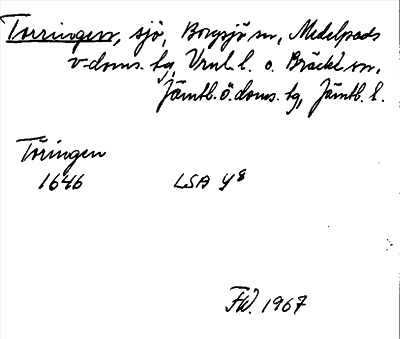 Torringen, sjö, Borgsjö sn, Medelpads
v. doms. tg, Vnl. l. o. Bräcke sn,
Jämtl. ö. doms. tg, Jämtl. l.
Töringen
1646 LSA Y8
FW. 1967